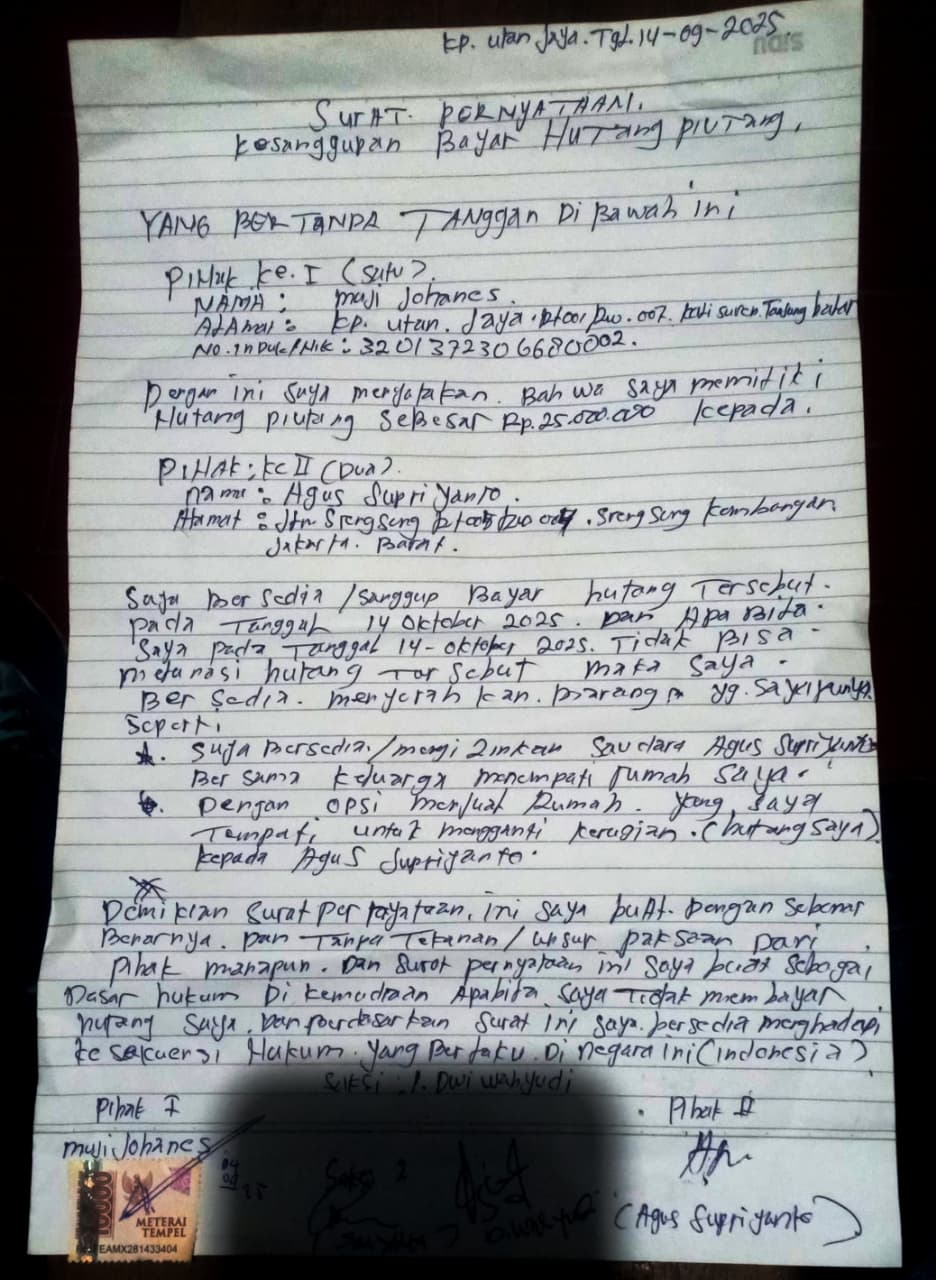 Kp. utan Jaya. Tgl. 14-09-2025
SurAT. PERNYATAAN.
Kesanggupan Bayar Hutang Piutang.
YANG BERTANDA TANGGAN Di Bawah ini
PiHak ke. I (satu).
NAMA : muji Johanes.
ALAmat : Kp. utan. Jaya. Rt001 Rw. 007. Kali suren. Tanjung
No. induk/Nik : 3201372306680002.
Dengan ini saya menyatakan. Bahwa saya memiliki
Hutang piutang seBesar Rp. 25.000.000 kepada.
PiHAK : ke II (Dua).
nama : Agus SupriYanto.
Alamat : Jln. SrengSeng . SrengSeng kembangan
Jakarta. Barat.
Saya BerSedia / Sanggup Bayar hutang Tersebut.
pada Tanggal 14 Oktober 2025. Dan ApaBila.
Saya pada Tanggal 14-Oktober 2025. Tidak Bisa
melunasi hutang TerSebut maka Saya.
BerSedia. menyerahkan. Barang yg. Saya punya
Seperti
a. Saya Bersedia / mengizinkan Saudara Agus Supriyanto
BerSama keluarga menempati rumah Saya.
b. Dengan OPSi menjual Rumah. yang Saya
Tempati untuk mengganti kerugian. (hutang Saya)
kepada Agus Supriyanto.
Demikian Surat pernyataan. ini Saya buAt. Dengan Sebenar
Benarnya. Dan Tanpa Tekanan / unsur paksaan Dari
Pihak manapun. Dan Surat pernyataan ini Saya buat Sebagai
Dasar hukum Di kemudiaan Apabila Saya Tidak membayar
hutang Saya. Dan berdasarkan Surat ini Saya bersedia menghadapi
keSekuensi Hukum. yang Berlaku. Di Negara ini (indonesia)
Saksi : 1. Dwi wahyudi
Pihak I
Pihak II
muji Johanes
Saksi 2
10000
METERAI
TEMPEL
EAMX281433404
(Agus Supriyanto)